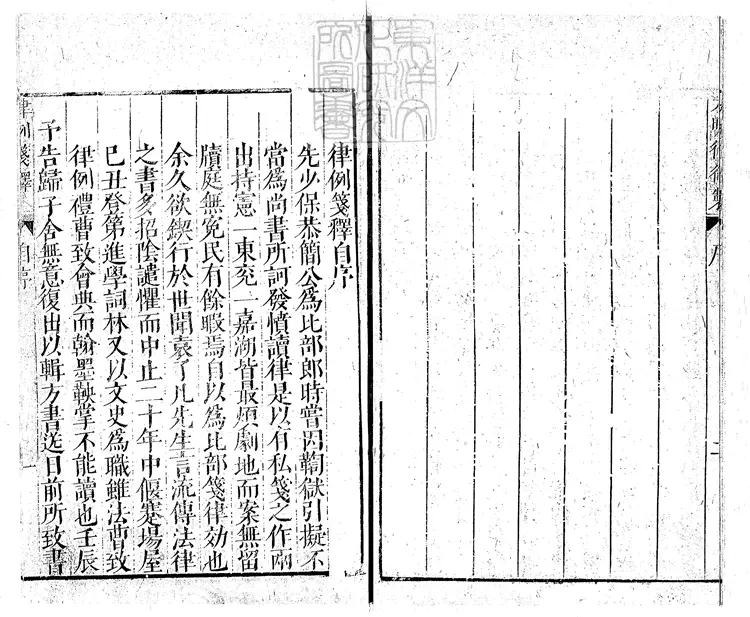 序
二
律例箋釋自序
先少保恭簡公為比部郎時嘗因鞫獄引擬不
當為尚書所訶發憤讀律是以有私箋之作兩
出持憲一東兗一嘉湖皆最煩劇地而案無留
牘庭無冤民有餘暇焉自以為比部箋律効也
余久欲鍥行於世聞袁了凡先生言流傳法律
之書多招陰譴懼而中止二十年中偃蹇場屋
己丑登第進學詞林又以文史為職雖法曹致
律例禮曹致會典而翰墨鞅掌不能讀也壬辰
予告歸子舍無意復出以輯方書迄日前所致書
律例箋釋
自序
一